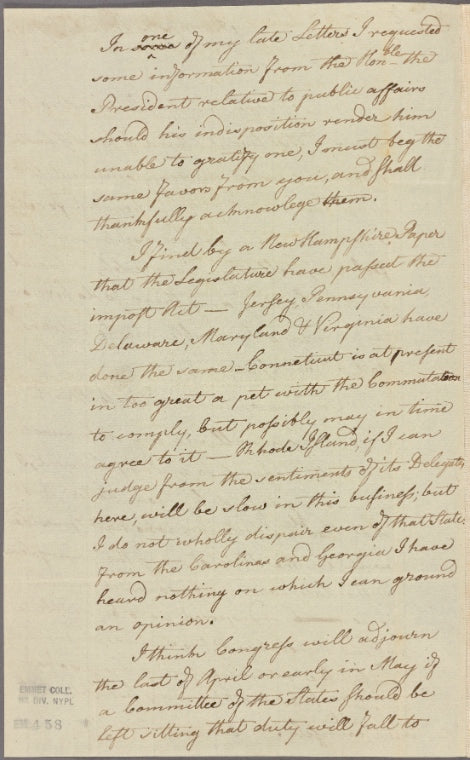 In one of my late Letters I requested
some information from the Honble the
President relative to public affairs
should his indisposition render him
unable to gratify one, I must beg the
same favors from you, and shall
thankfully acknowlege them.
I find by a New Hampshire Paper
that the Legislature have passed the
impost Act — Jersey, Pennsylvania,
Delaware, Maryland & Virginia have
done the same — Conneticut is at present
in too great a pet with the Commutation
to comply, but possibly may in time
agree to it — Rhode Island, if I can
judge from the sentiments of its Delegates
here, will be slow in this business; but
I do not wholly dispair even of that State.
From the Carolinas and Georgia I have
heard nothing on which I can ground
an opinion.
I think Congress will adjourn
the last of April or early in May if
a Committee of the States should be
left sitting that duty will fall to
EMMET COLL.
MS. DIV. NYPL